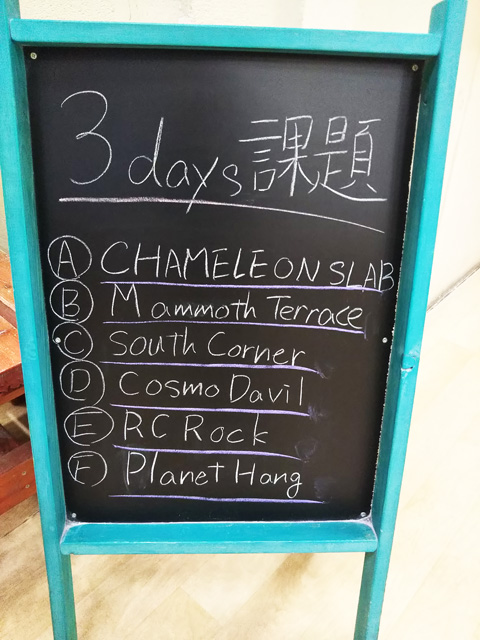 3 days 課題
A CHAMELEON SLAB
B Mammoth Terrace
C South Corner
D Cosmo Davil
E RC Rock
F Planet Hang